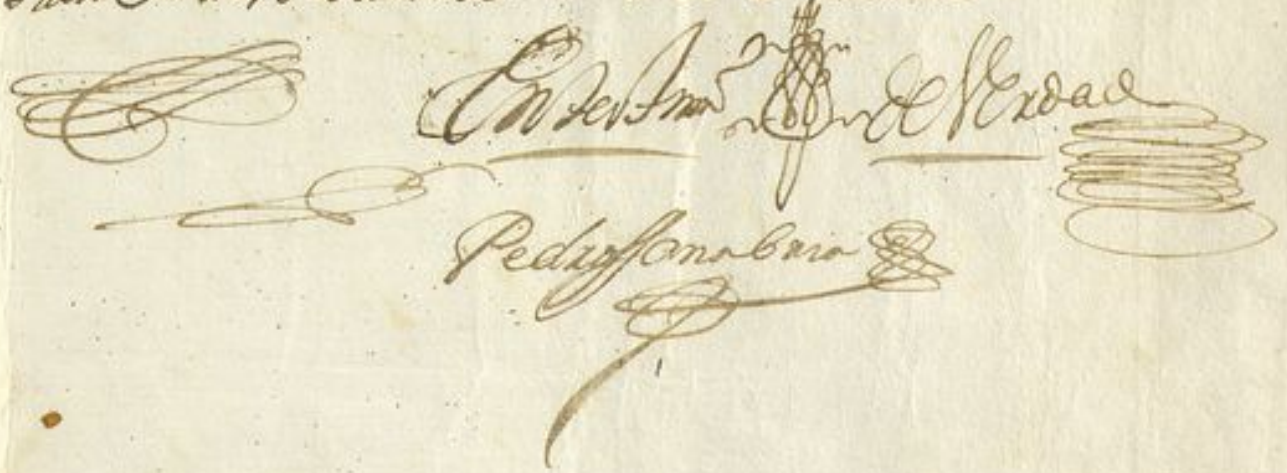 En testimo de Verdad
Pedro Sanabria